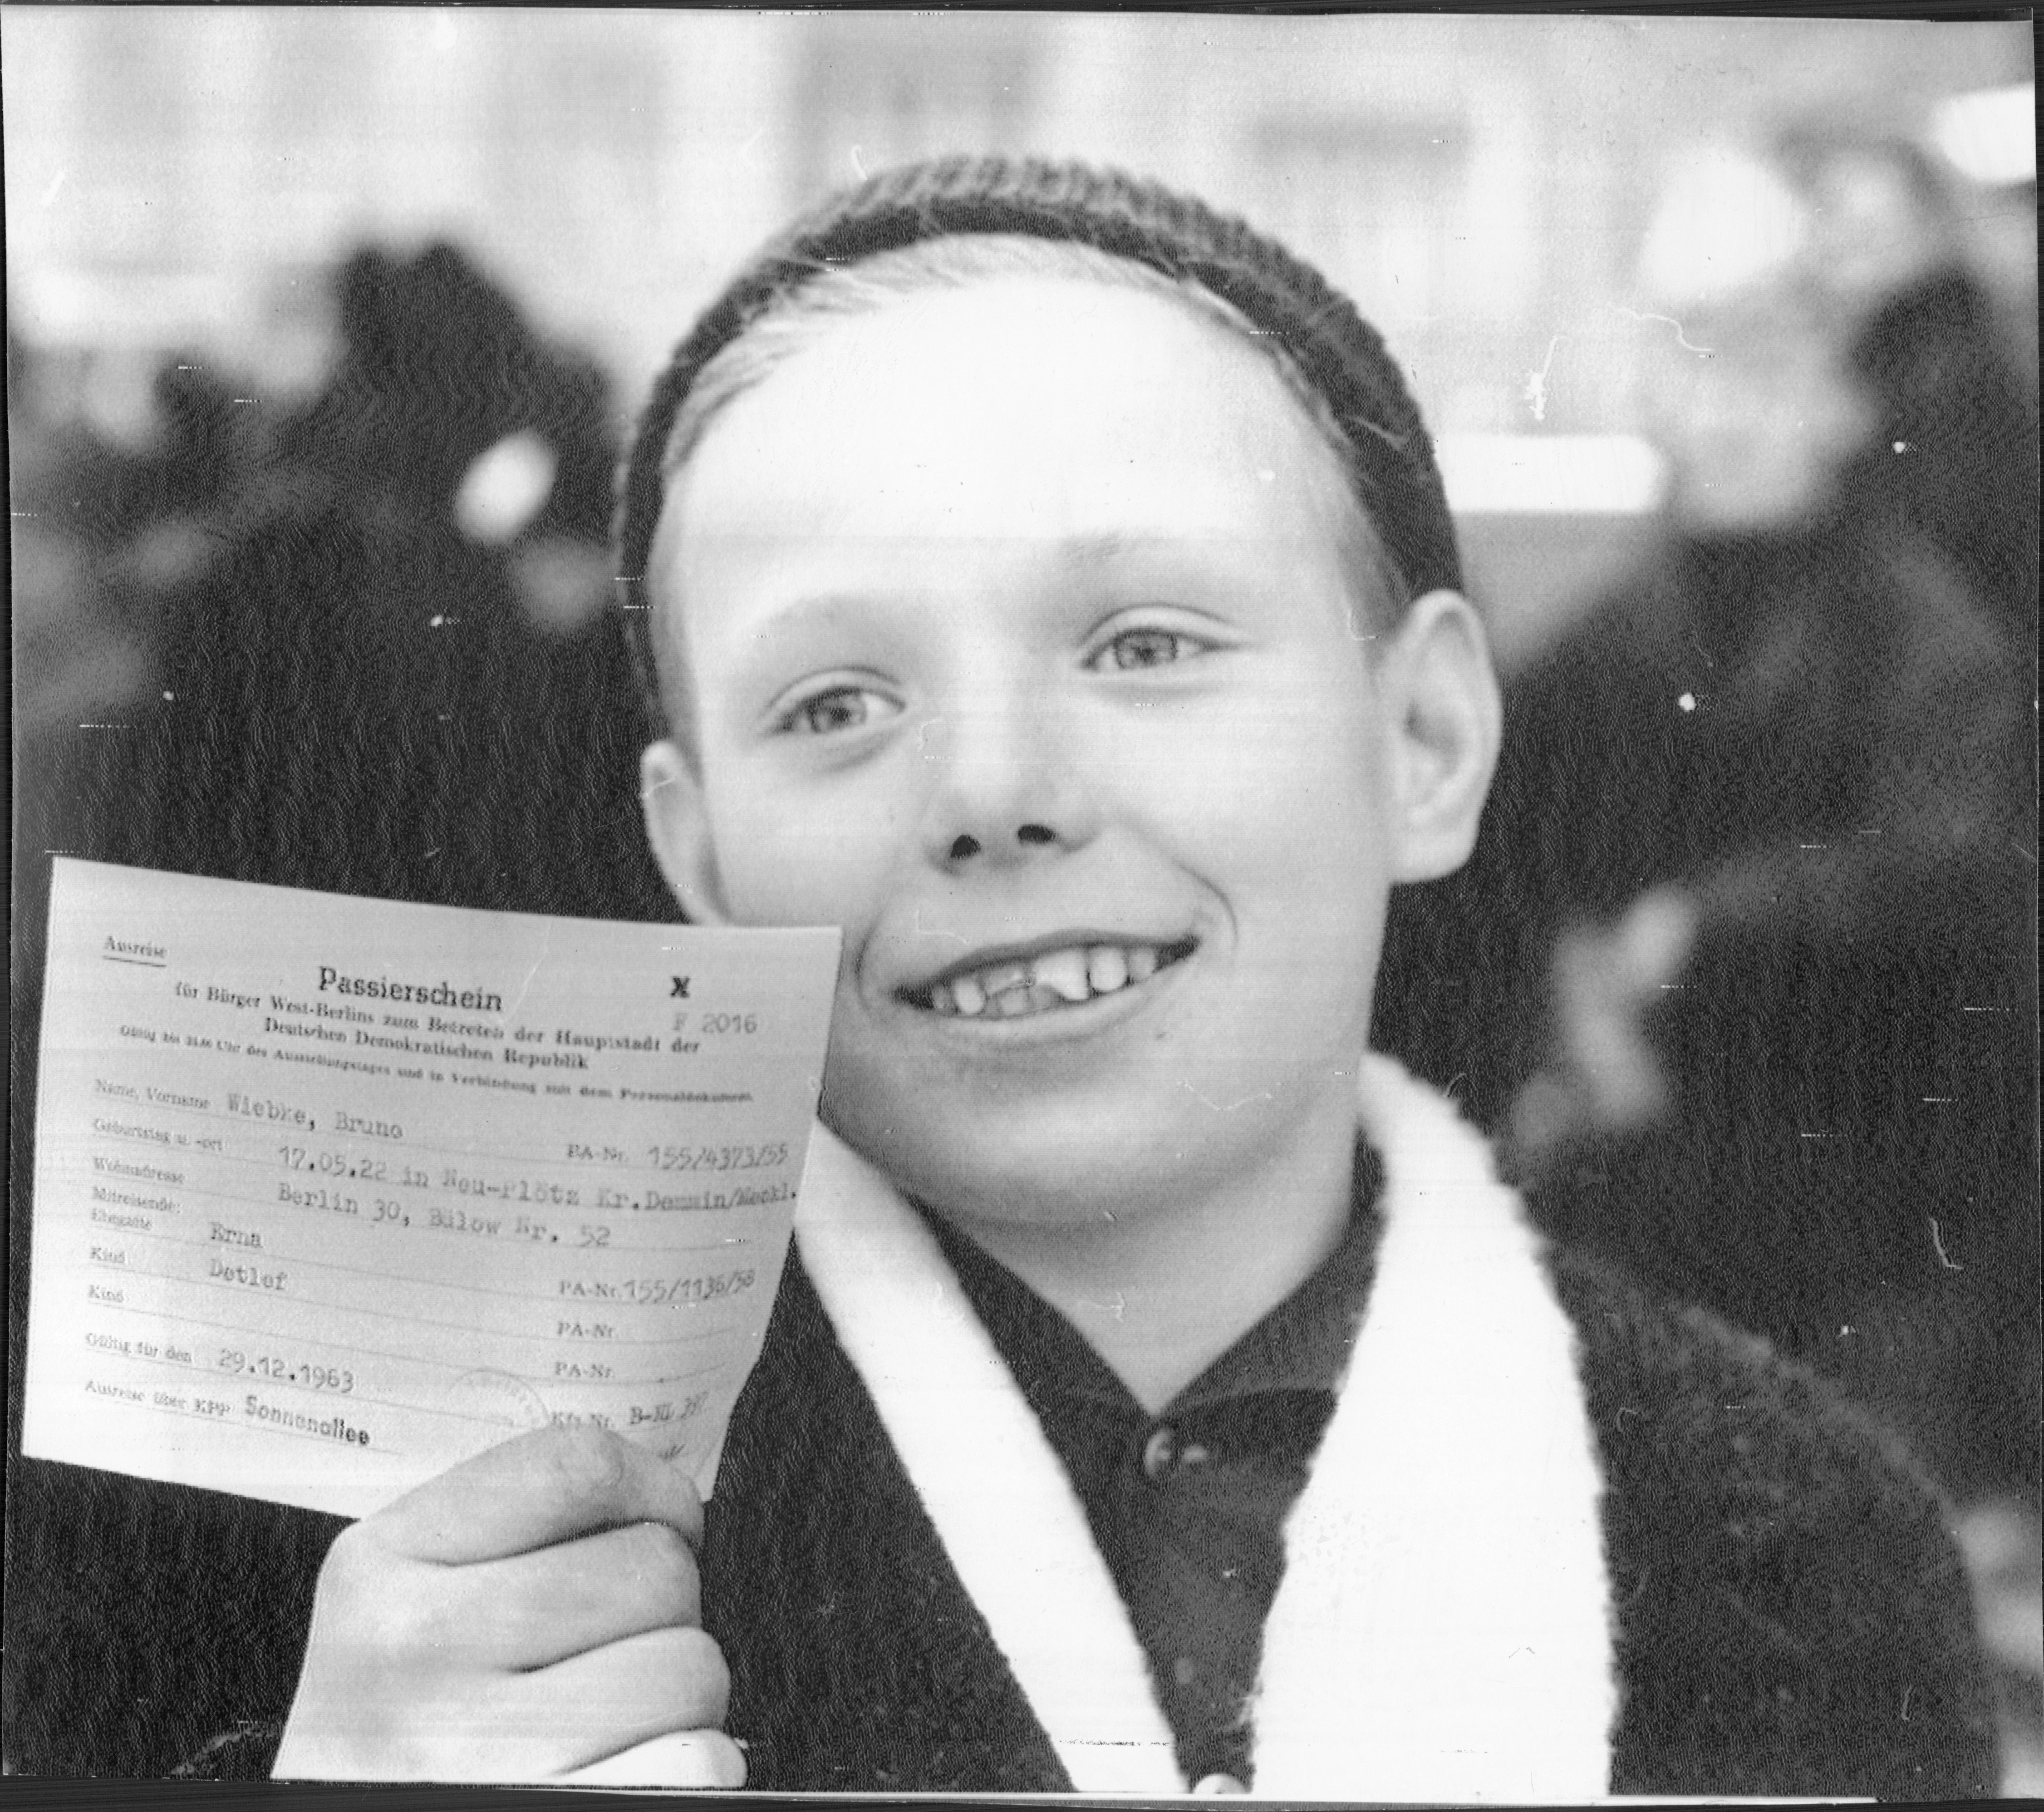 Ausreise
Passierschein X
für Bürger West-Berlins zum Betreten der Hauptstadt der
F 2016
Deutschen Demokratischen Republik
Gültig bis Uhr des Ausstellungstages und in Verbindung mit dem Personaldokument
Name, Vorname Wiebke, Bruno
PA-Nr. 155/4373/55
Geburtstag u. -ort 17.05.22 in Neu-Plötz Kr.Demmin/Meckl.
Wohnadresse Berlin 30, Bülow Nr. 52
Mitreisende:
Ehegatte Erna PA-Nr. 155/1136/58
Kind Detlef PA-Nr.
Kind PA-Nr.
Gültig für den 29.12.1963 Kfz.Nr.
Ausreise über KPP Sonnenallee